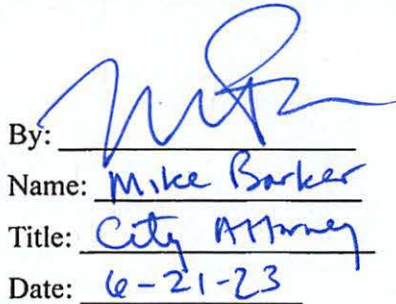 By:
Name: Mike Barker
Title: City Attorney
Date: 6-21-23